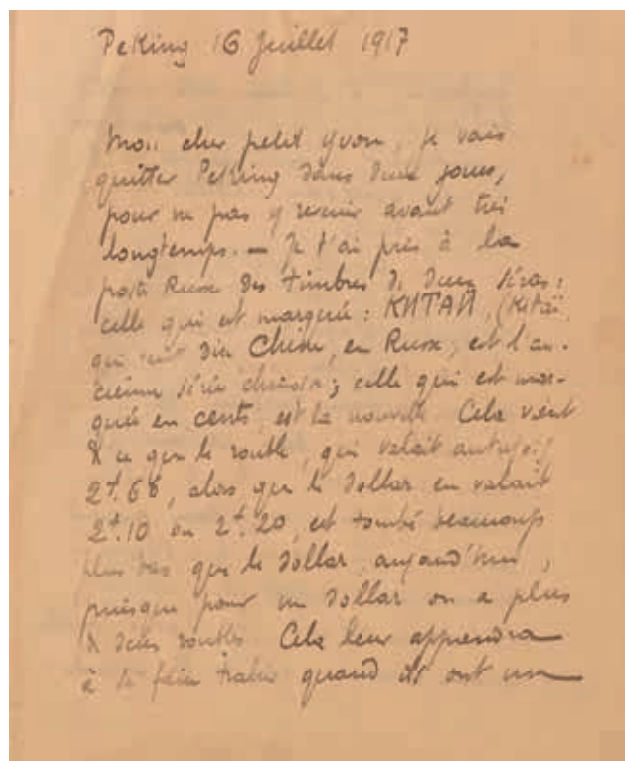 Peking 16 Juillet 1917
Mon cher petit Yvon, je vais
quitter Peking dans deux jours,
pour ne pas y revenir avant très
longtemps. — Je t'ai pris à la
poste Russe des timbres de deux séries :
celle qui est marquée : КИТАЙ, (Kitaï,
qui veut dire Chine, en Russe, est l'an-
cienne série chinoise ; celle qui est mar-
quée en cents, est la nouvelle. Cela vient
de ce que le rouble, qui valait autrefois
2f.68, alors que le dollar en valait
2f.10 ou 2f.20, est tombé beaucoup
plus bas que le dollar, aujourd'hui,
puisque pour un dollar on a plus
de deux roubles. Cela leur apprendra
à se faire trahir quand ils ont un